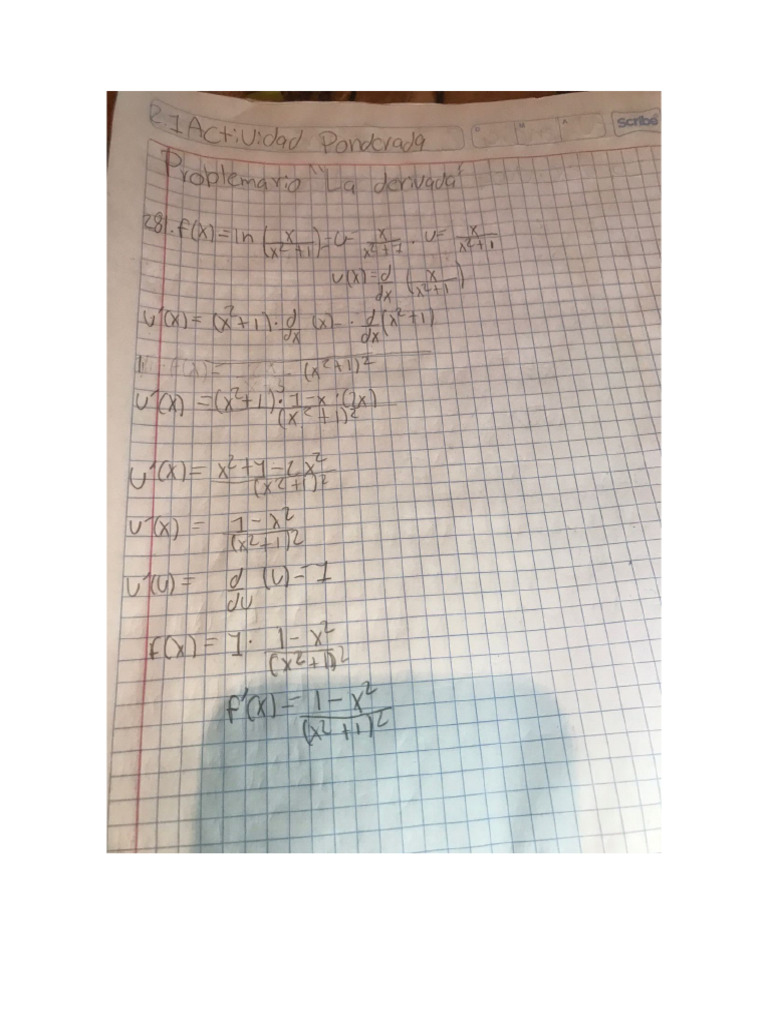 2.1 Actividad Ponderada
Scribe
Problemario "La derivada"
281. f(x) = ln (x/(x²+1)) = u = x/(x²+1) . u = x/(x²+1)
u(x) = d/dx (x/(x²+1))
u'(x) = (x²+1) · d/dx (x) – · d/dx (x²+1)
(x²+1)²
u'(x) = (x²+1) · 1 – x · (2x) / (x²+1)²
u'(x) = x²+1–2x² / (x²+1)²
u'(x) = 1–x² / (x²+1)²
u'(u) = d/du (u) – 1
f(x) = 1 · 1–x² / (x²+1)²
f'(x) = 1–x² / (x²+1)²